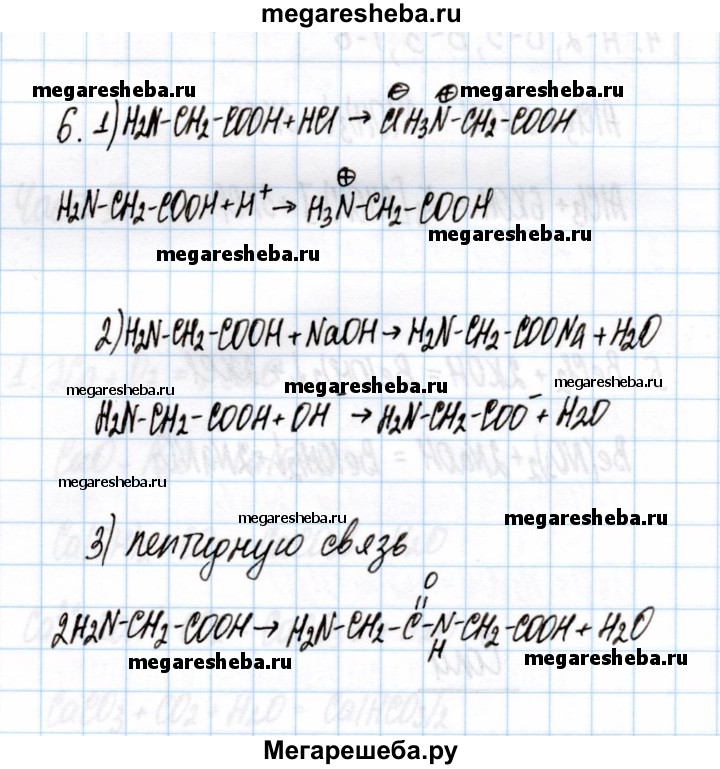 megaresheba.ru
megaresheba.ru megaresheba.ru
⊖ ⊕
6. 1) H2N-CH2-COOH + HCl → ClH3N-CH2-COOH
⊕
H2N-CH2-COOH + H⁺ → H3N-CH2-COOH
megaresheba.ru
megaresheba.ru
2) H2N-CH2-COOH + NaOH → H2N-CH2-COONa + H2O
megaresheba.ru megaresheba.ru megaresheba.ru
H2N-CH2-COOH + OH⁻ → H2N-CH2-COO⁻ + H2O
megaresheba.ru
megaresheba.ru megaresheba.ru
3) пептидную связь
O
=
2H2N-CH2-COOH → H2N-CH2-C-N-CH2-COOH + H2O
H
megaresheba.ru megaresheba.ru
Мегарешеба.ру